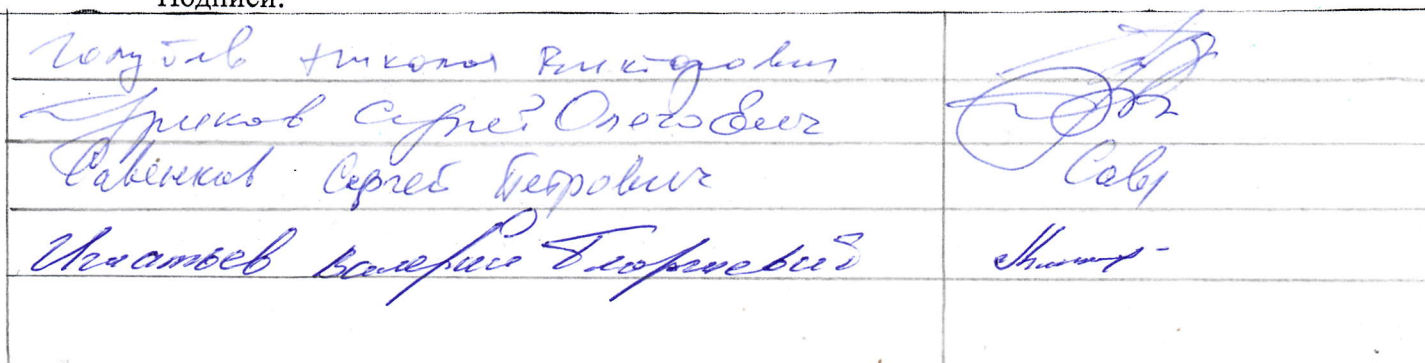 Подписи:
Николай Викторович
Сергей Олегович
Савенков Сергей Петрович Сав	
Игнатьев Валерий Георгиевич